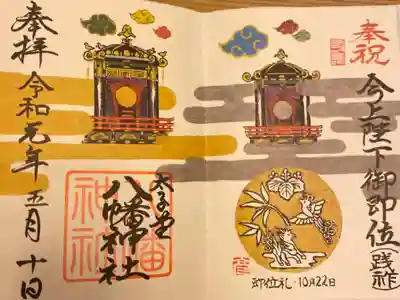 奉祝
今上陛下御即位(践祚)
即位礼・10月22日
奉拝
令和元年五月十日
太子堂
八幡神社